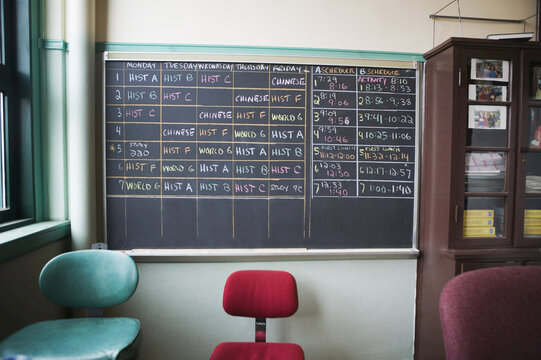 MONDAY TUESDAY WEDNESDAY THURSDAY FRIDAY A SCHEDULE B SCHEDULE
1 HIST A HIST B HIST C CHINESE 1 7:29 8:16 ACTIVITY 8:10 1 8:13-8:53
2 HIST B HIST C CHINESE HIST F 2 8:19 9:06 2 8:56-9:38
3 HIST C CHINESE HIST F WORLD G 3 9:09 9:56 3 9:41-10:22
4 CHINESE HIST F WORLD G HIST A 4 9:59 10:46 4 10:25-11:06
*5 STUDY 230 HIST F WORLD G HIST A HIST B 5 FIRST LUNCH 11:12-12:00 5 FIRST LUNCH 11:32-12:14
6 HIST F WORLD G HIST A HIST B HIST C 6 12:03 12:50 6 12:17-12:57
7 WORLD G HIST A HIST B HIST C STUDY 9C 7 12:53 1:40 7 1:00-1:40